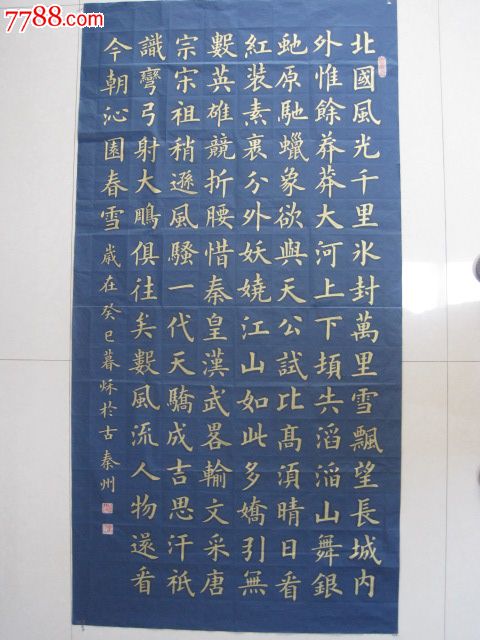 7788.com
北國風光千里氷封萬里雪飄望長城内
外惟餘莽莽大河上下頃失滔滔山舞銀
虵原馳蠟象欲與天公試比髙須晴日看
紅装素裹分外妖嬈江山如此多嬌引無
數英雄競折腰惜秦皇漢武畧輸文采唐
宗宋祖稍遜風騷一代天驕成吉思汗祇
識彎弓射大鵰俱往矣數風流人物還看
今朝沁園春雪歲在癸巳暮秌於古秦州